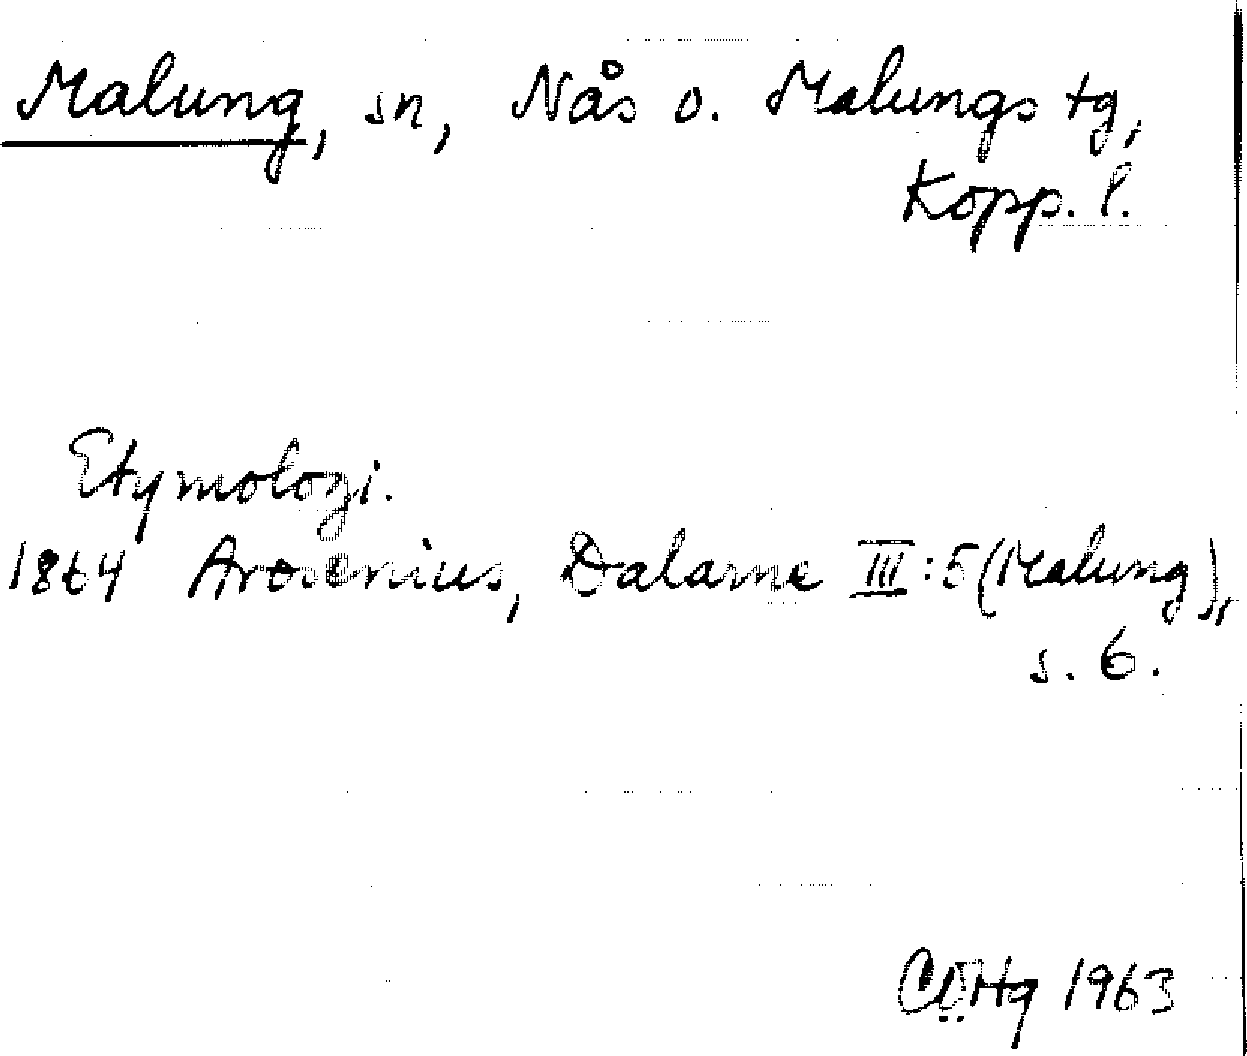 Malung, sn, Nås o. Malungs tg,
Kopp. l.
Etymologi.
1864 Arosenius, Dalarne III:5 (Malung),
s. 6.
1963